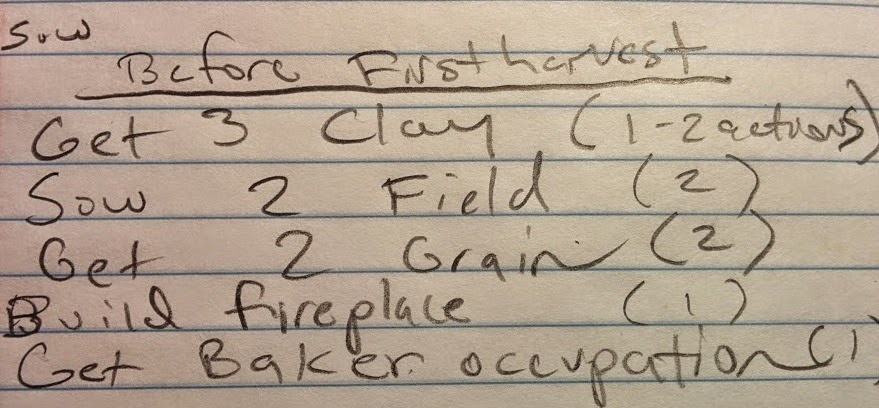 Sow
Before First harvest
Get 3 Clay (1-2 actions)
Sow 2 Field (2)
Get 2 Grain (2)
Build fireplace (1)
Get Baker occupation (1)